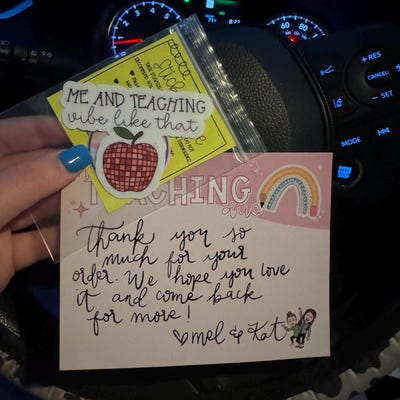 ME AND TEACHING
vibe like that
TEACHING
duo
Thank you so
much for your
order. We hope you love
it and come back
for more!
♡mel & Kat
+ RES
CANCEL
- SET
MODE
ENGINE
START
STOP